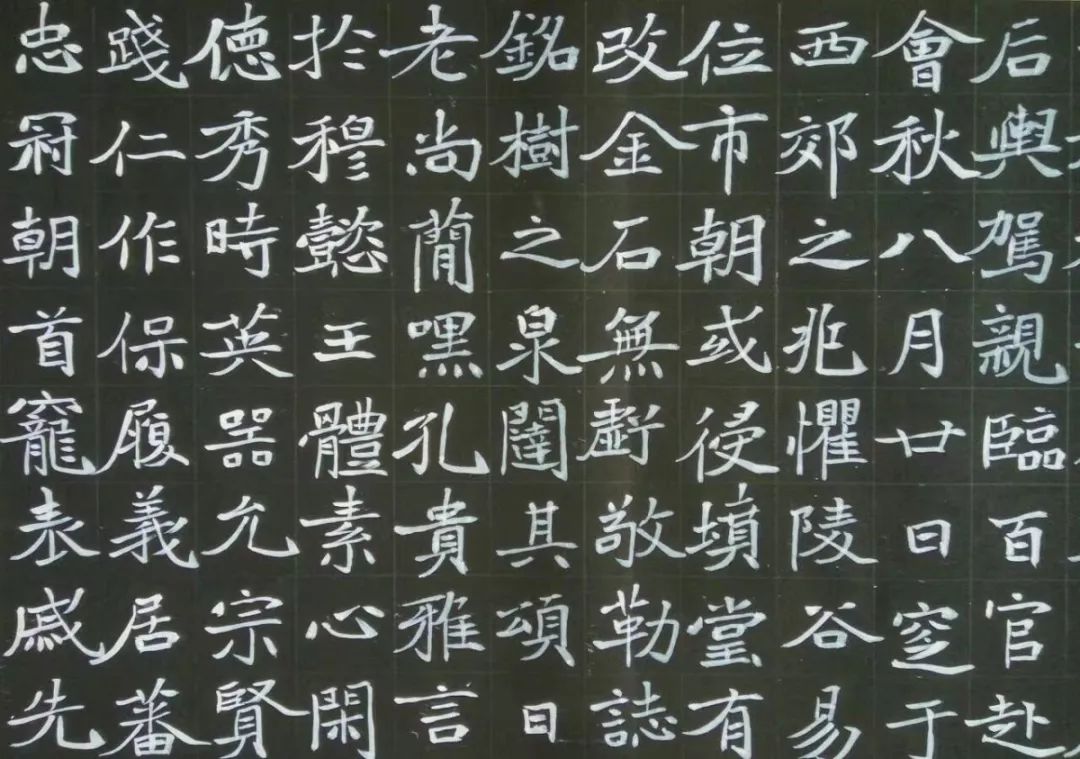 后輿駕親臨百官赴
會秋八月廿日窆于
西郊之兆懼陵谷易
位市朝或侵墳堂有
改金石無虧敬勒誌
銘樹之泉闥其頌曰
老尚蕳嘿孔貴雅言
於穆懿王體素心閑
徳秀時英器允宗賢
踐仁作保履義居蕃
忠冠朝首寵表戚先